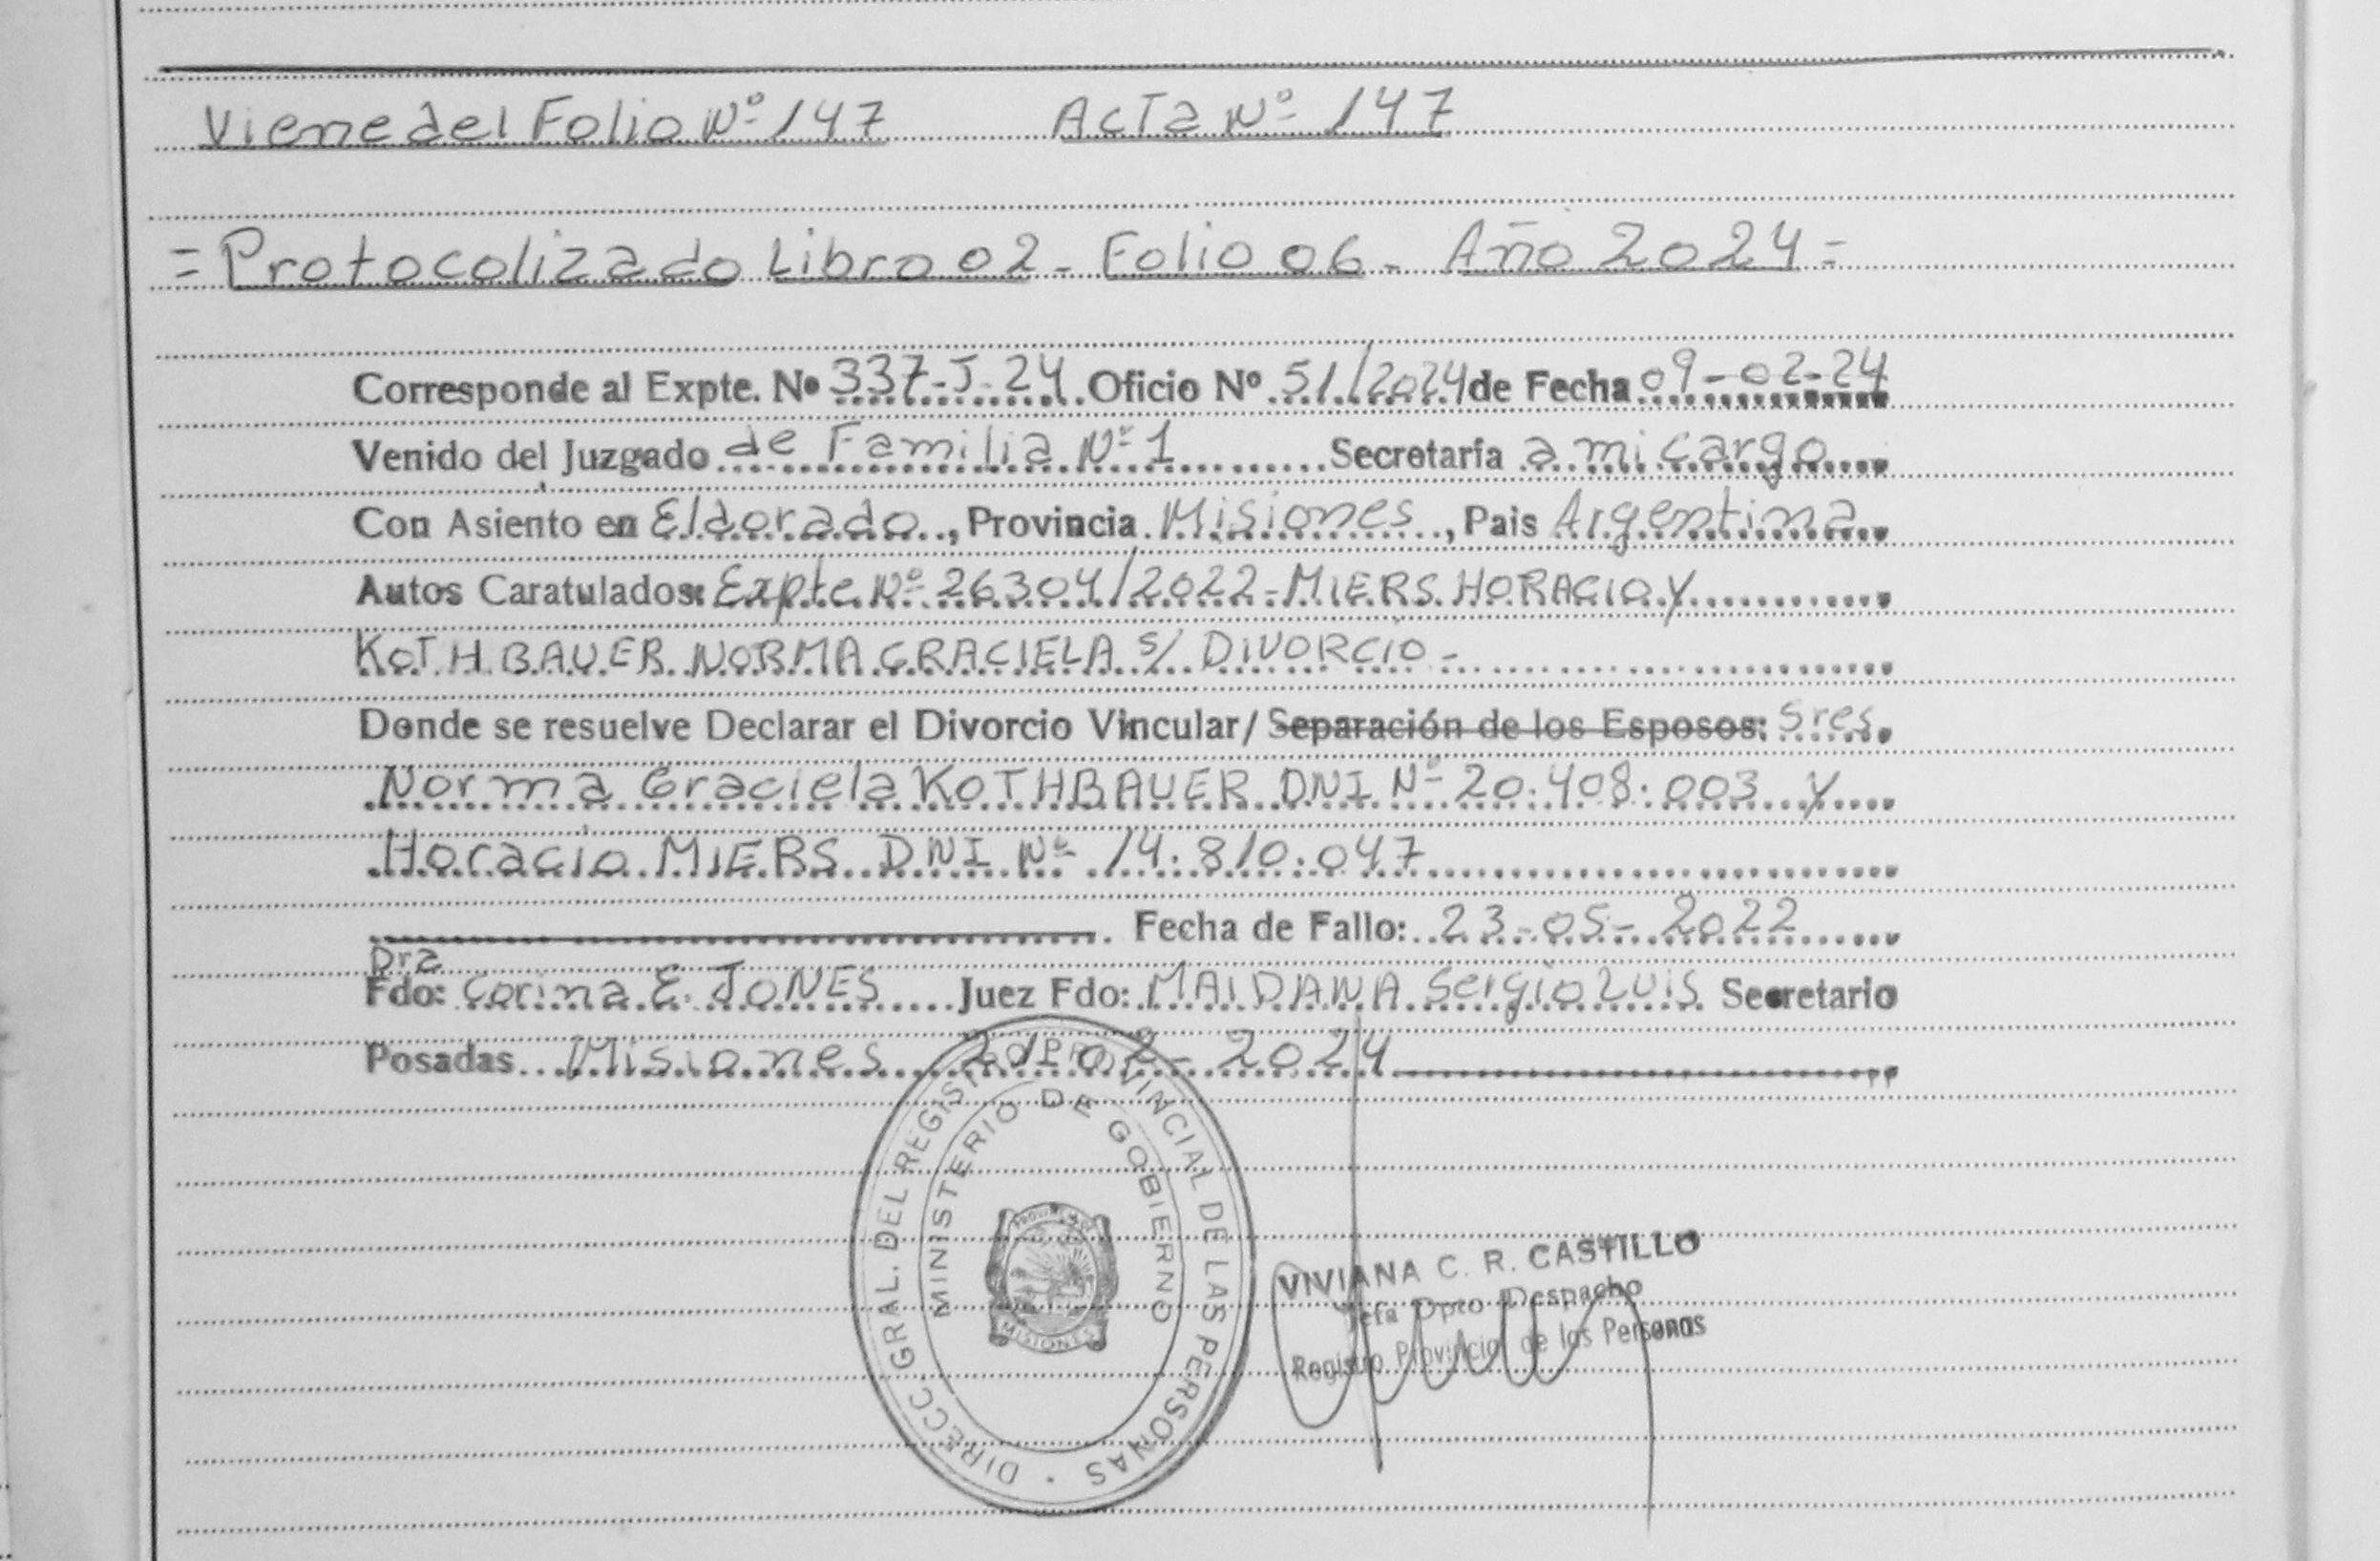 Viene del Folio Nº 147 Acta Nº 147
= Protocolizado Libro 02 - Folio 06 - Año 2024 =
Corresponde al Expte. Nº 337-J-24. Oficio Nº 51/2024 de Fecha 09-02-24
Venido del Juzgado de Familia Nº 1 Secretaría a mi cargo
Con Asiento en Eldorado, Provincia Misiones, Pais Argentina
Autos Caratulados: Expte Nº 26304/2022-MIERS HORACIO Y
KOTHBAUER NORMA GRACIELA s/ DIVORCIO -
Donde se resuelve Declarar el Divorcio Vincular/ Separación de los Esposos: Sres
Norma Graciela KOTHBAUER DNI Nº 20.408.003 y
Horacio MIERS DNI Nº 14.810.047
Fecha de Fallo: 23-05-2022
Dra
Fdo: Corina E. JONES Juez Fdo: MAIDANA Sergio Luis Secretario
Posadas Misiones 21-02-2024
DIRECC. GRAL. DEL REGISTRO PROVINCIAL DE LAS PERSONAS
MINISTERIO DE GOBIERNO
PROVINCIA DE
MISIONES
VIVIANA C. R. CASTILLO
Jefa Dpto Despacho
Registro Provincial de las Personas